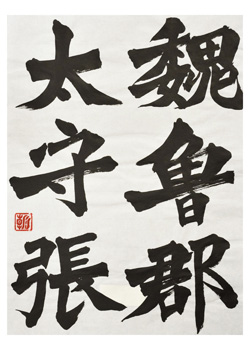 魏魯郡
太守張